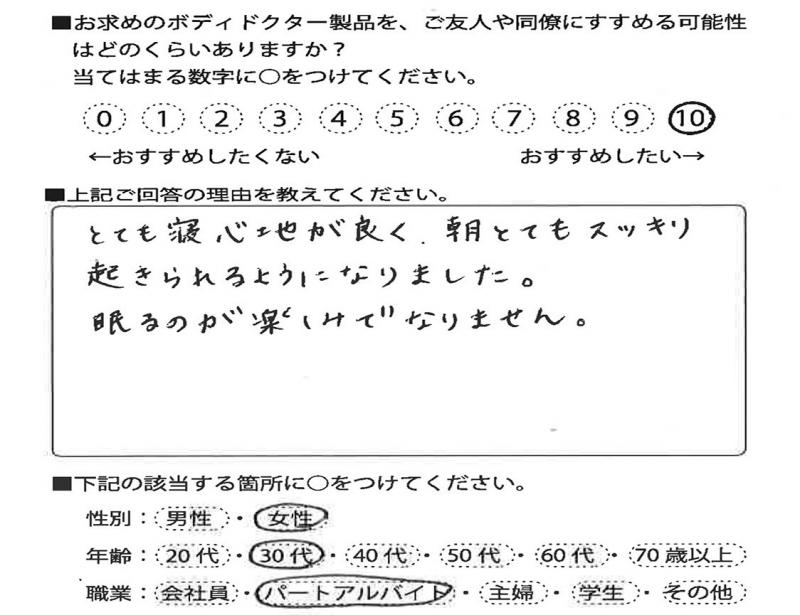 ■お求めのボディドクター製品を、ご友人や同僚にすすめる可能性
はどのくらいありますか？
当てはまる数字に○をつけてください。
0 1 2 3 4 5 6 7 8 9 10
←おすすめしたくない おすすめしたい→
■上記ご回答の理由を教えてください。
とても寝心地が良く、朝とてもスッキリ
起きられるようになりました。
眠るのが楽しみでなりません。
■下記の該当する箇所に○をつけてください。
性別：男性・女性
年齢：20代・30代・40代・50代・60代・70歳以上
職業：会社員・パートアルバイト・主婦・学生・その他